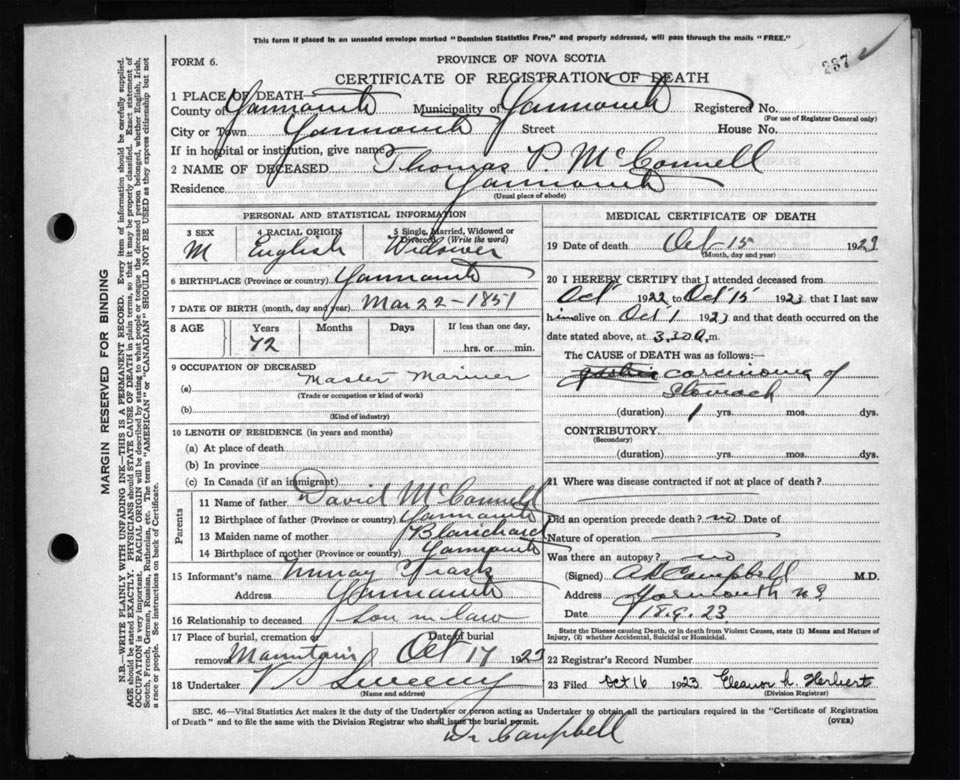 This form if placed in an unsealed envelope marked "Dominion Statistics Free," and properly addressed, will pass through the mails "FREE."
287
FORM 6.
PROVINCE OF NOVA SCOTIA
CERTIFICATE OF REGISTRATION OF DEATH
1 PLACE OF DEATH—
County of Yarmouth Municipality of Yarmouth Registered No.
(For use of Registrar General only)
City or Town Yarmouth Street House No.
If in hospital or institution, give name
2 NAME OF DECEASED Thomas P. McConnell
Residence Yarmouth
(Usual place of abode)
PERSONAL AND STATISTICAL INFORMATION
3 SEX 4 RACIAL ORIGIN 5 Single, Married, Widowed or Divorced (Write the word)
M English Widower
6 BIRTHPLACE (Province or country) Yarmouth
7 DATE OF BIRTH (month, day and year) Mar 22 - 1851
8 AGE Years Months Days If less than one day,
72 hrs. or min.
9 OCCUPATION OF DECEASED
(a) Master Mariner
(Trade or occupation or kind of work)
(b)
(Kind of industry)
10 LENGTH OF RESIDENCE (in years and months)
(a) At place of death
(b) In province
(c) In Canada (if an immigrant)
Parents
11 Name of father David McConnell
12 Birthplace of father (Province or country) Yarmouth
13 Maiden name of mother Blanchard
14 Birthplace of mother (Province or country) Yarmouth
15 Informant's name Murray Trask
Address Yarmouth
16 Relationship to deceased son in law
17 Place of burial, cremation or Date of burial
removal Mountain Oct 17 1923
18 Undertaker V S Sweeny
(Name and address)
MEDICAL CERTIFICATE OF DEATH
19 Date of death Oct-15 1923
(Month, day and year)
20 I HEREBY CERTIFY that I attended deceased from
Oct 1922 to Oct 15 1923 that I last saw
him alive on Oct 1 1923 and that death occurred on the
date stated above, at 3.30 a.m.
The CAUSE OF DEATH was as follows:—
carcinoma of
Stomach
(duration) 1 yrs. mos. dys.
CONTRIBUTORY.
(Secondary)
(duration) yrs. mos. dys.
21 Where was disease contracted if not at place of death?
Did an operation precede death? no Date of
Nature of operation
Was there an autopsy? no
(Signed) Campbell M.D.
Address Yarmouth N.S
Date 18.9.23
State the Disease causing Death, or in death from Violent Causes, state (1) Means and Nature of Injury, (2) whether Accidental, Suicidal or Homicidal.
22 Registrar's Record Number
23 Filed Oct 16 1923 Eleanor L. Herbert
(Division Registrar)
SEC. 46—Vital Statistics Act makes it the duty of the Undertaker or person acting as Undertaker to obtain all the particulars required in the "Certificate of Registration
of Death" and to file the same with the Division Registrar who shall issue the burial permit. (OVER)
Dr Campbell
MARGIN RESERVED FOR BINDING
N.B.—WRITE PLAINLY WITH UNFADING INK—THIS IS A PERMANENT RECORD. Every item of information should be carefully supplied.
AGE should be stated EXACTLY. PHYSICIANS should STATE CAUSE OF DEATH in plain terms, so that it may be properly classified. Exact statement of
OCCUPATION is very important. RACIAL ORIGIN will be described by stating to what people or tongue the deceased person belonged, whether English, Irish,
Scotch, French, German, Russian, Ruthenian, etc. The terms "AMERICAN" or "CANADIAN" SHOULD NOT BE USED as they express citizenship but not
a race or people. See instructions on back of Certificate.